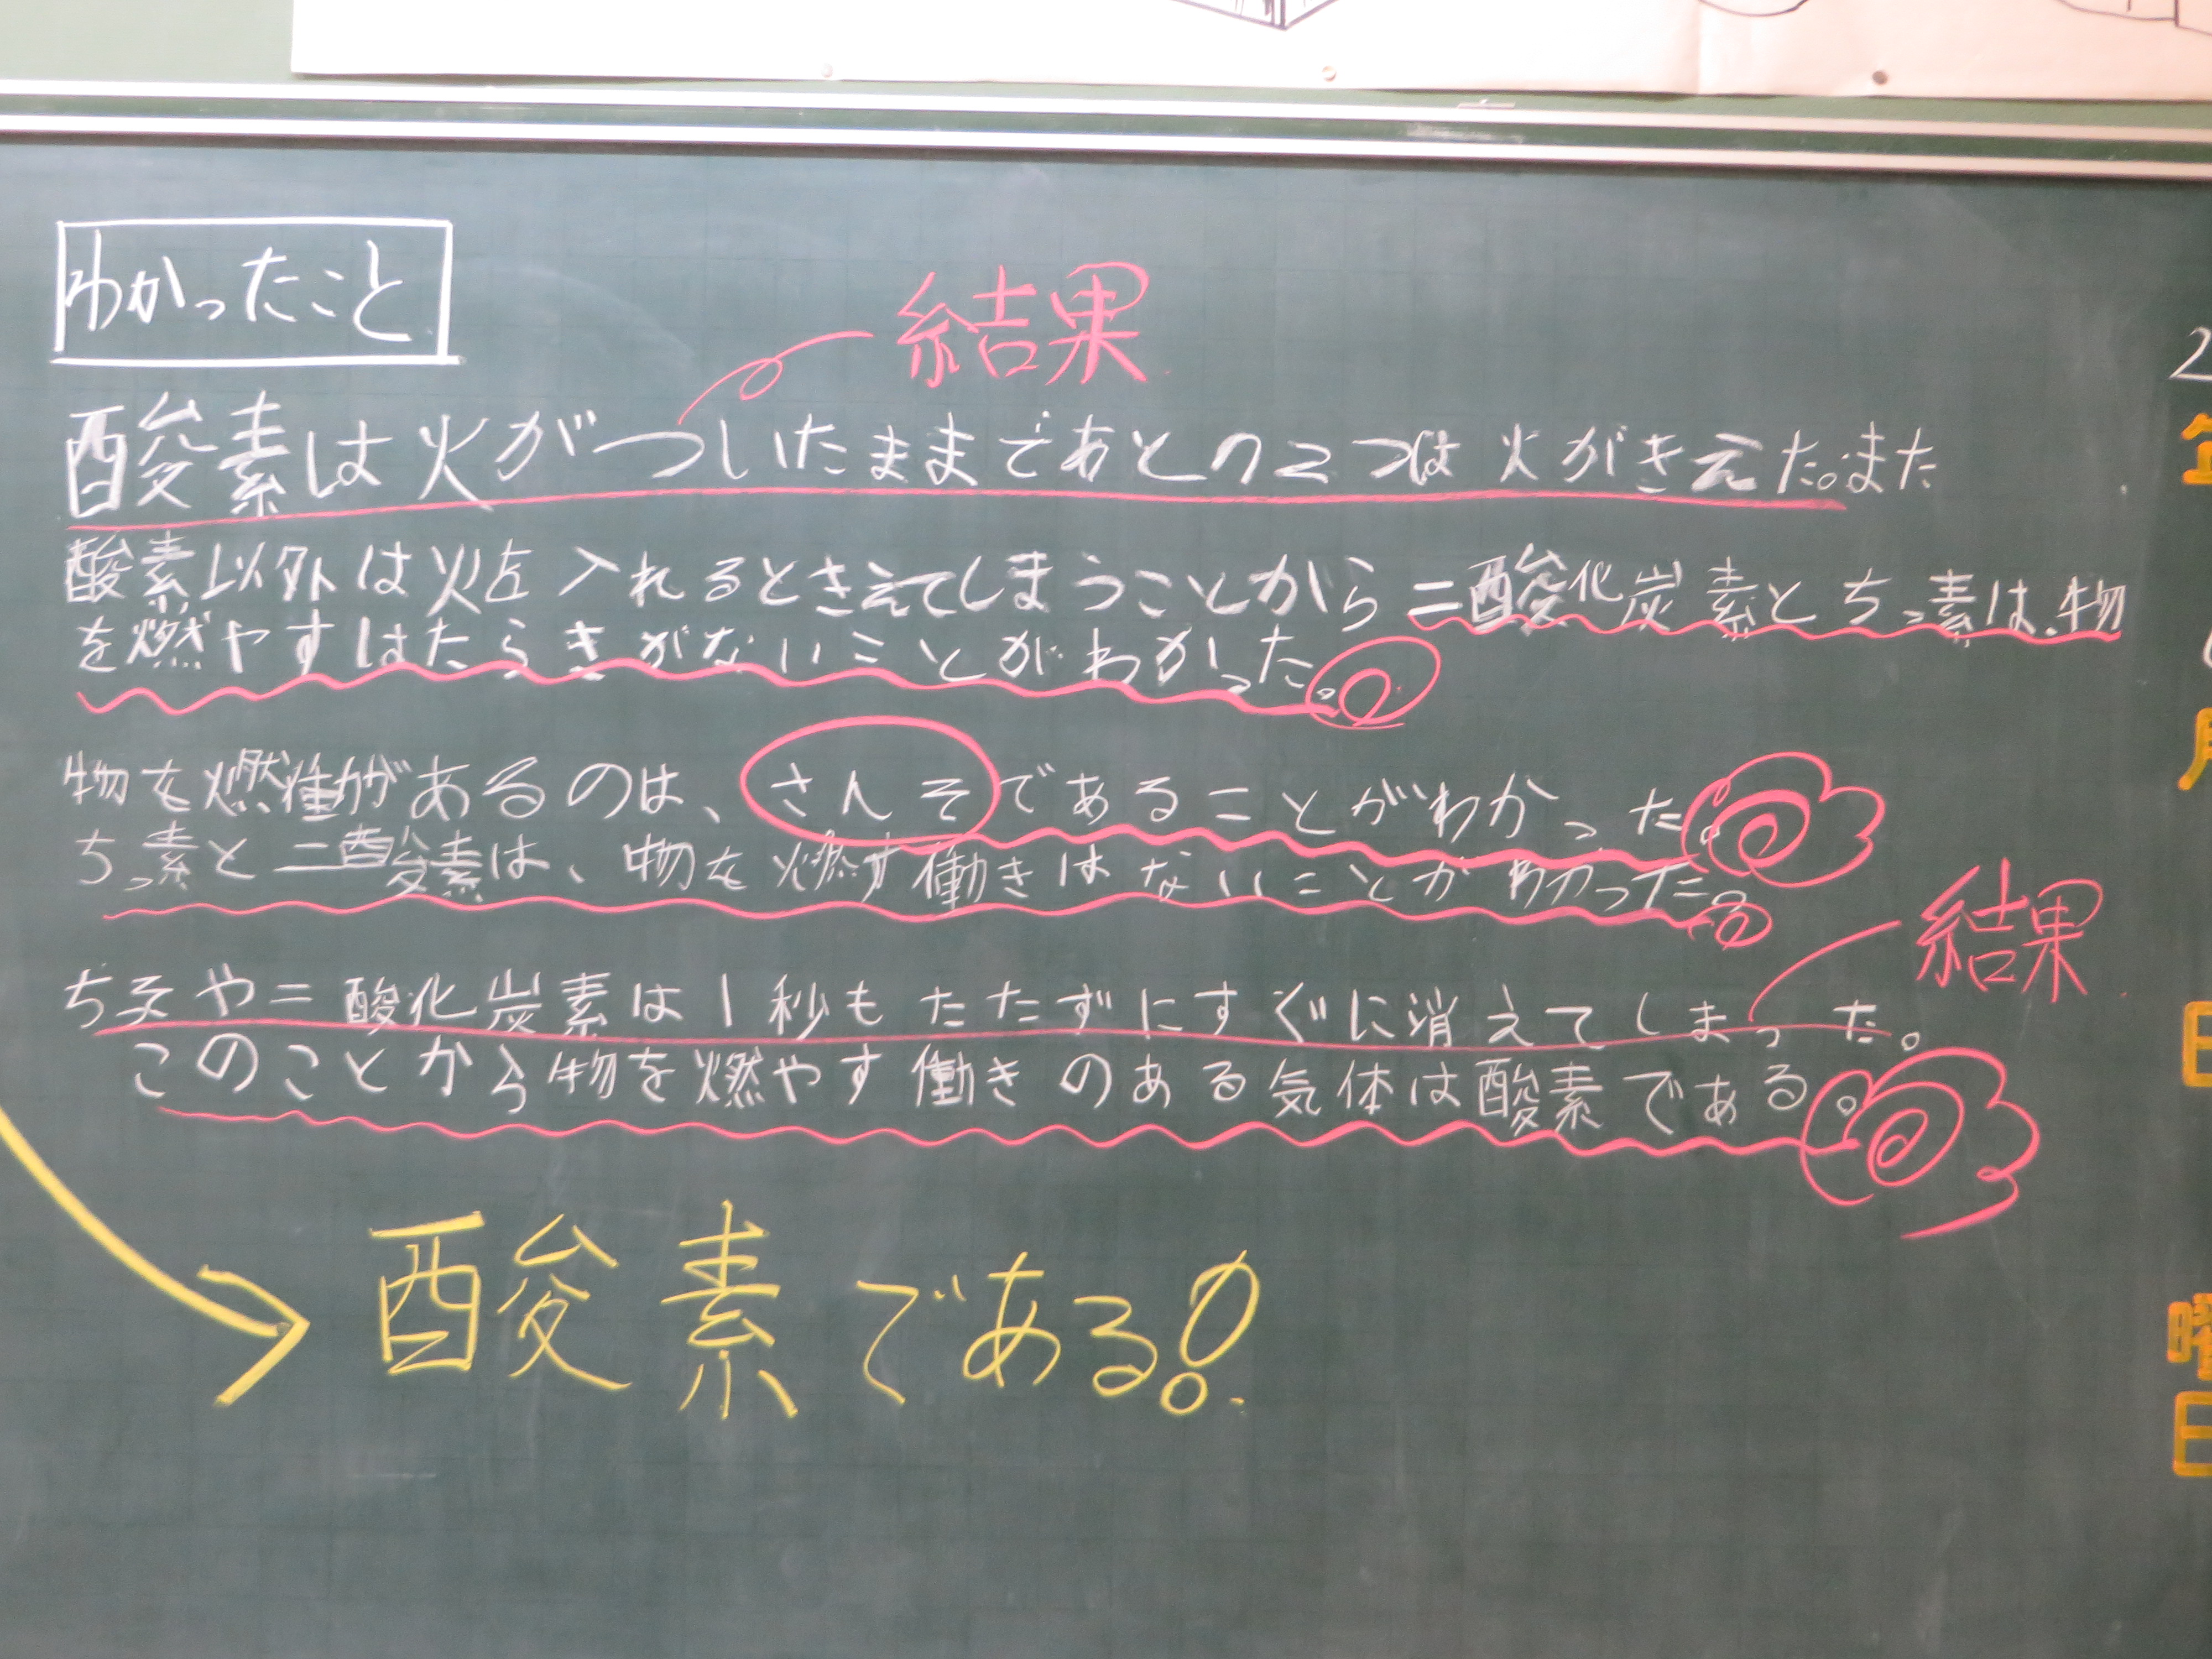 わかったこと
結果
酸素は火がついたままであとの2つは火がきえた。また
酸素以外は火を入れるときえてしまうことから二酸化炭素とちっ素は、物
を燃やすはたらきがないことがわかった。
物を燃 があるのは、さんそであることがわかった。
ちっ素と二酸素は、物を燃す働きはないことがわかった。
結果
ち素や二酸化炭素は1秒もたたずにすぐに消えてしまった。
このことから物を燃やす働きのある気体は酸素である。
酸素である!
2
年
月
日
曜
日